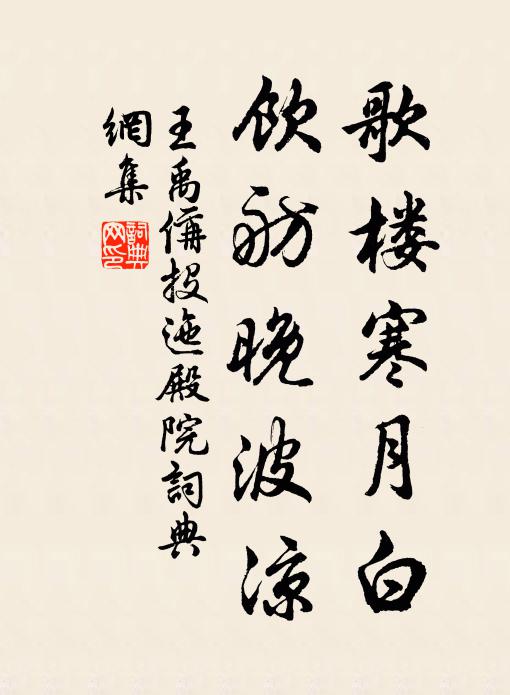 歌楼寒月白
饮舫晚波凉
王禹偁投迤殿院詞典
網集
詞典网印